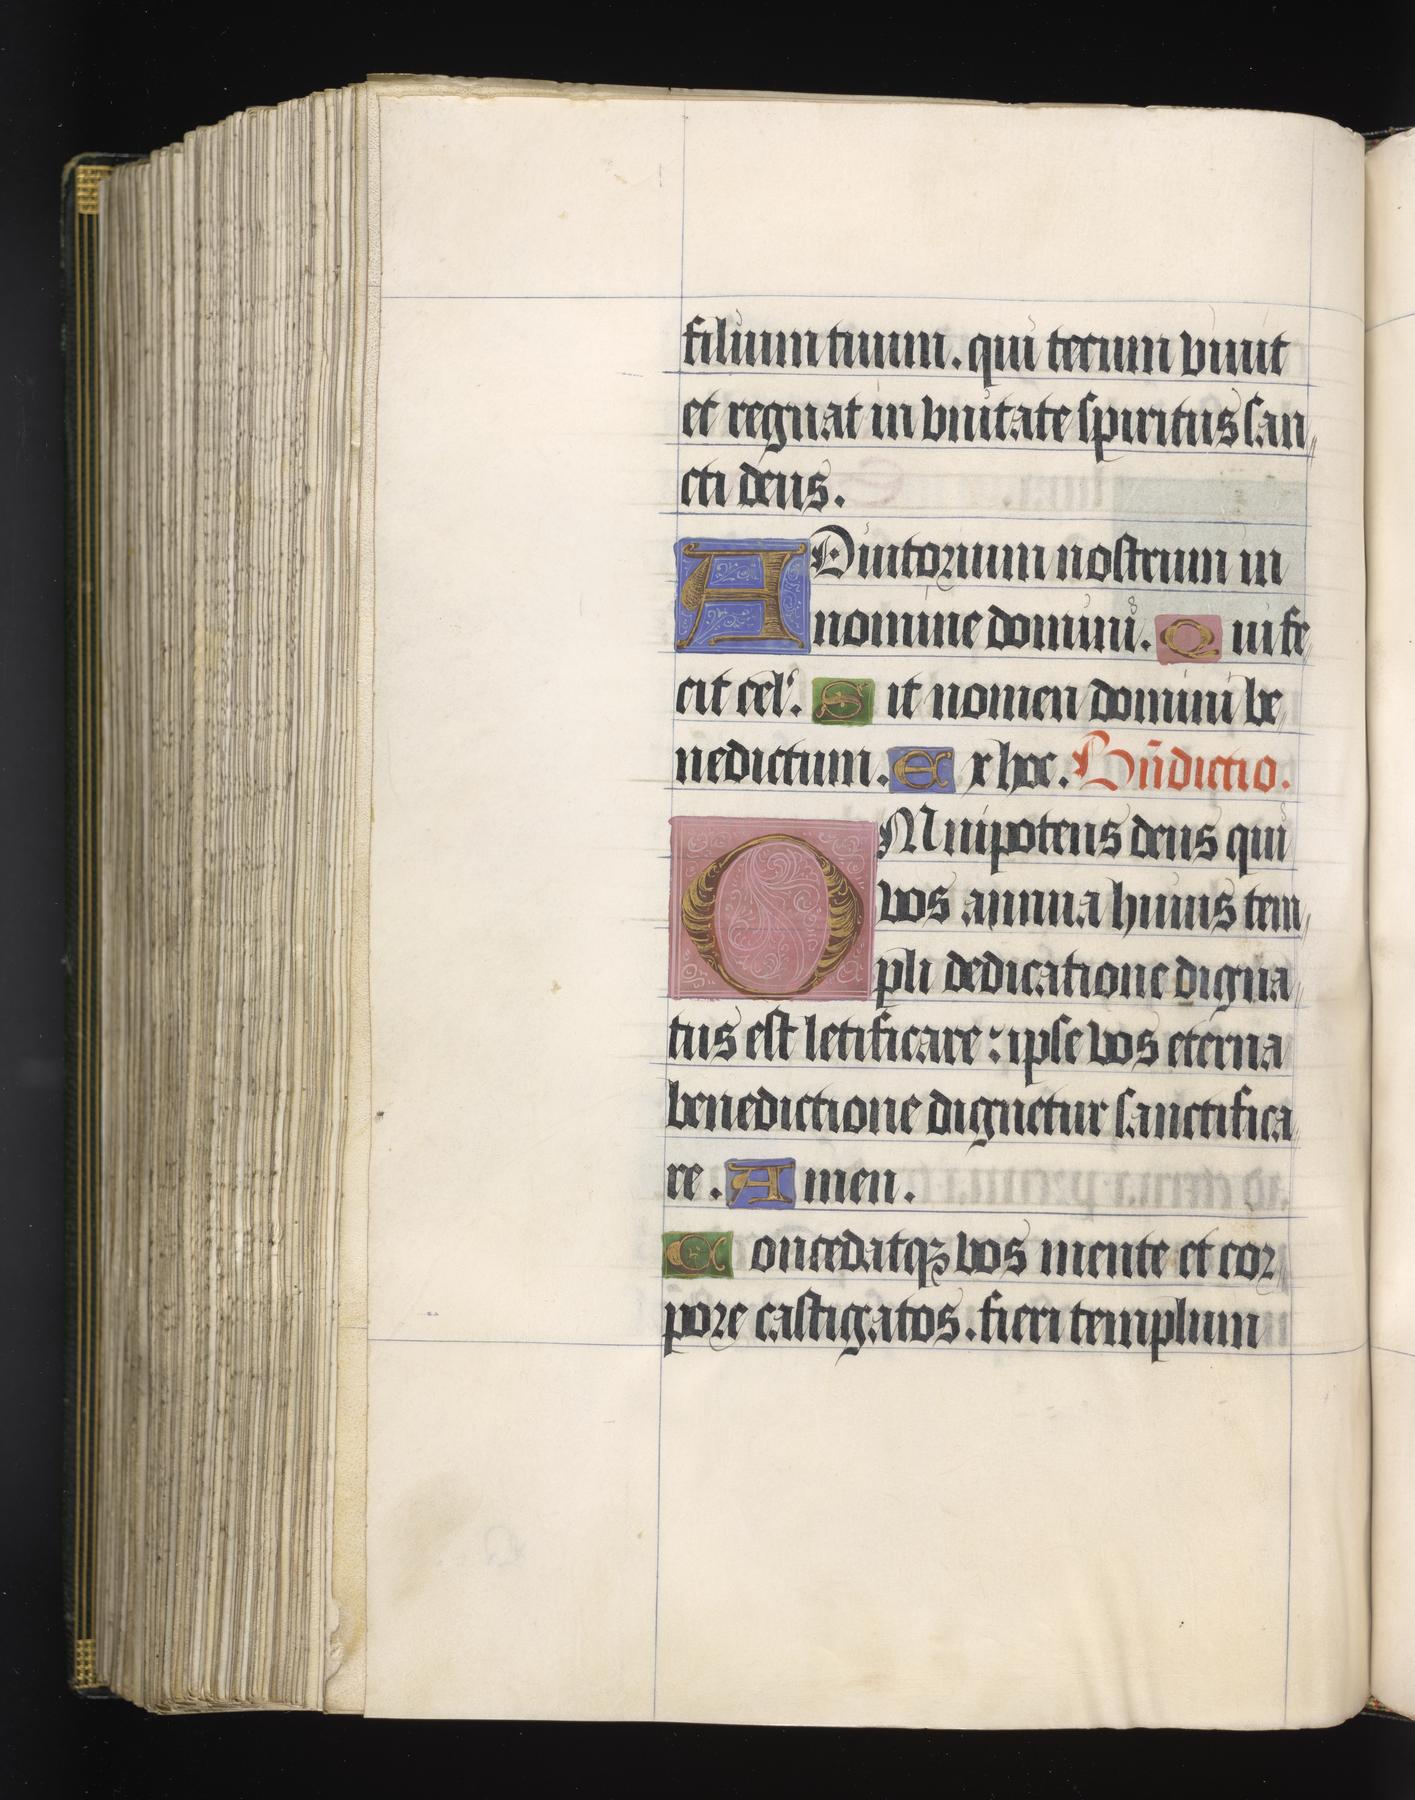 filium tuum. qui tecum viuit
et regnat in vnitate spiritus san,,
cti deus.
ADiutorium nostrum in
nomine domini. Qui fe,,
cit cel'. Sit nomen domini be,,
nedictum. Ex hoc. Bn̄dictio.
OMnipotens deus qui
vos annua huius tem,,
pli dedicatione digna,,
tus est letificare: ipse vos eterna
benedictione dignetur sanctifica,,
re. Amen.
Concedatqꝫ vos mente et cor,,
pore castigatos. fieri templum